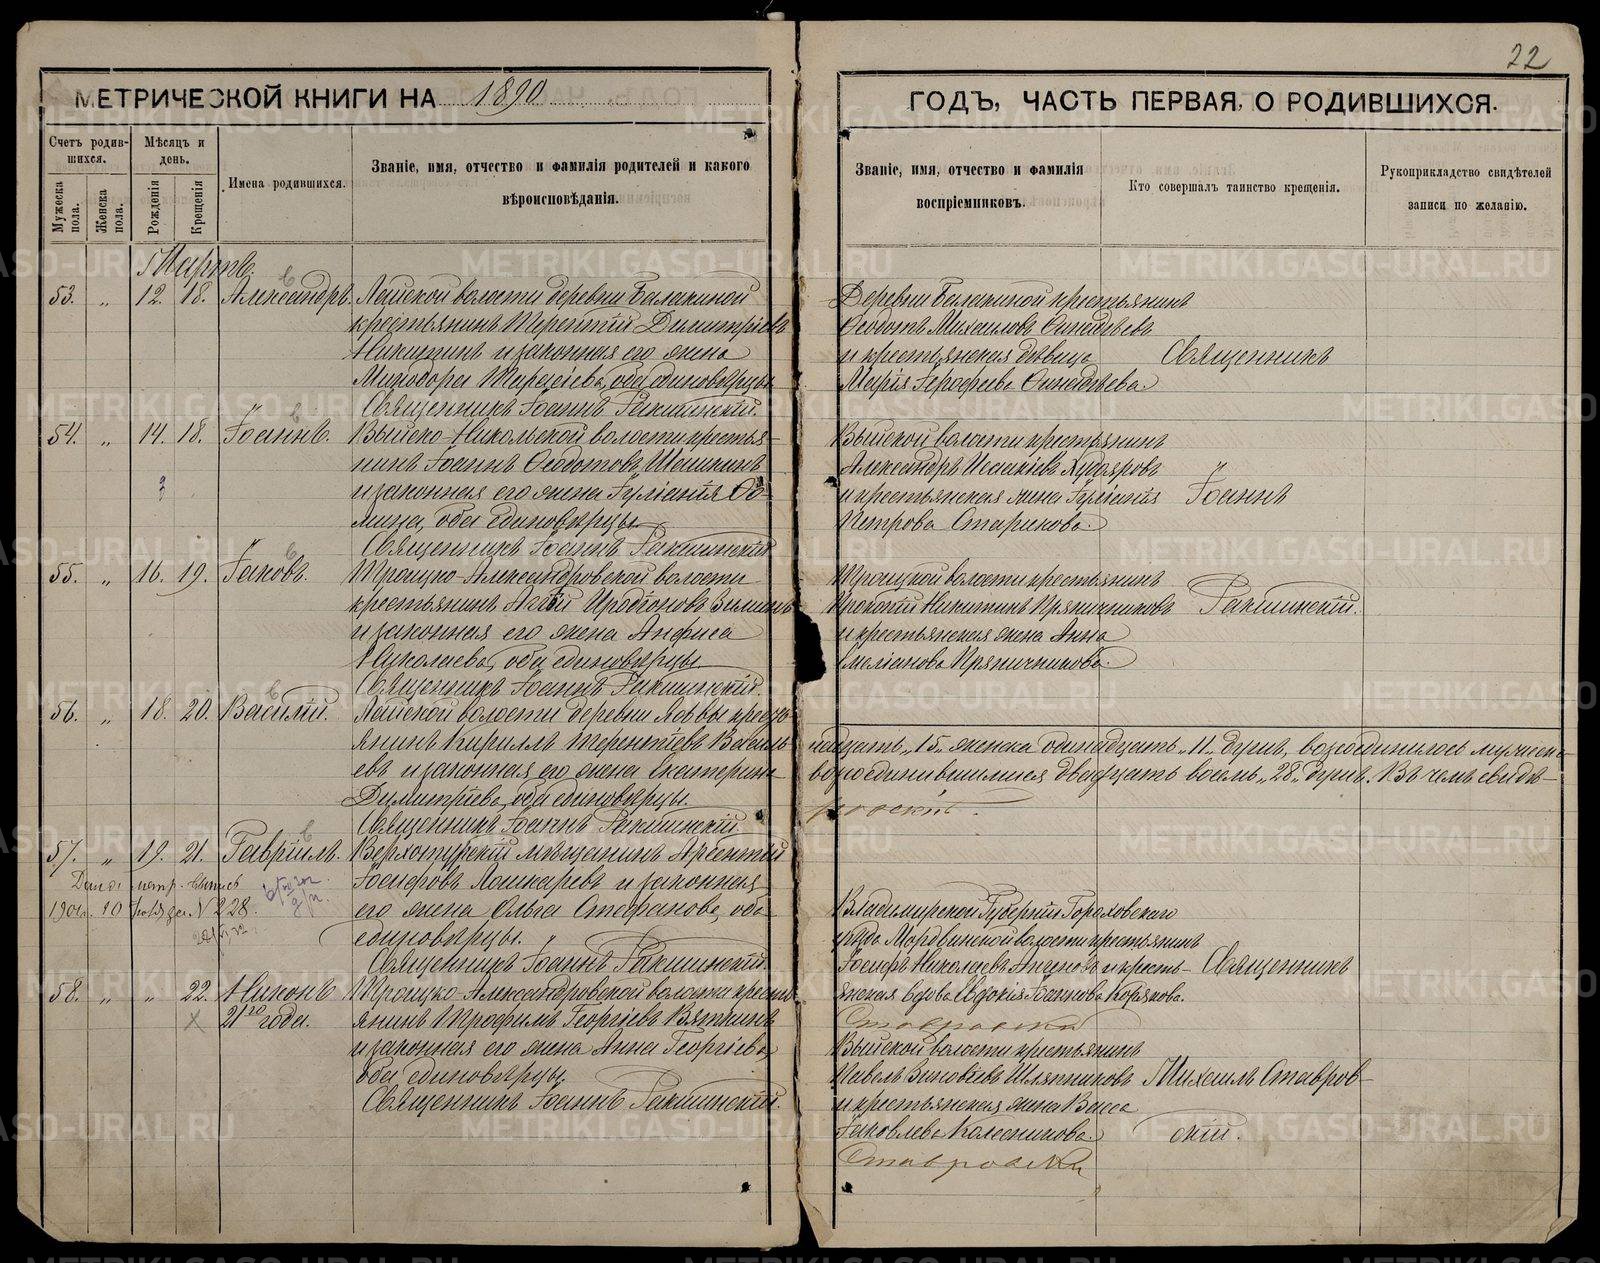 22
МЕТРИЧЕСКОЙ КНИГИ НА 1890
ГОДЪ, ЧАСТЬ ПЕРВАЯ, О РОДИВШИХСЯ.
Счетъ родив-
шихся.
Мужеска пола.
Женска пола.
Мѣсяцъ и
день.
Рожденія
Крещенія
Имена родившихся.
Званіе, имя, отчество и фамилія родителей и какого
вѣроисповѣданія.
Мартъ.
53. „ 12. 18. Александръ. Лайской волости деревни Балакиной
крестьянинъ Терентій Димитріевъ
Никитинъ и законная его жена
оба единовѣрцы
Священникъ Іоаннъ Ракшинскій.
54. „ 14. 18. Іоаннъ. Выйско-Никольской волости крестья-
нинъ Іоаннъ Ѳеодотовъ
и законная его жена Іуліанія Ѳо-
мина, оба единовѣрцы.
Священникъ Іоаннъ Ракшинскій
55. „ 16. 19. Іаковъ. Троицко-Александровской волости
крестьянинъ Иродіоновъ
и законная его жена Анфиса
Николаева, оба единовѣрцы.
Священникъ Іоаннъ Ракшинскій.
56. „ 18. 20. Василій. Лайской волости деревни крест-
янинъ Кириллъ Терентіевъ Василь-
евъ и законная его жена Екатерина
Димитріева, оба единовѣрцы.
Священникъ Іоаннъ Ракшинскій
57. „ 19. 21. Гавріилъ. Верхотурскій мѣщанинъ Арсентій
Іосифовъ Лошкаревъ и законная
его жена Ольга Стефанова, оба
единовѣрцы.
Священникъ Іоаннъ Ракшинскій.
метр. выпись
190 10 № 228.
58. „ „ 22. Никонъ Троицко-Александровской волости крест-
21 года. янинъ Трофимъ Георгіевъ Вяткинъ
и законная его жена Анна Георгіева,
оба единовѣрцы.
Священникъ Іоаннъ Ракшинскій.
Званіе, имя, отчество и фамилія
воспріемниковъ.
Кто совершалъ таинство крещенія.
Рукоприкладство свидѣтелей
записи по желанію.
Деревни Балакиной крестьянинъ
Ѳеодотъ Михаиловъ
и крестьянская дѣвица Священникъ
Марія Ерофеева
Выйской волости крестьянинъ
Александръ Исаакіевъ Худяровъ
и крестьянская жена Іуліанія Іоаннъ
Петрова Старикова.
Троицкой волости крестьянинъ
Прокопій Никитинъ Пряничниковъ Ракшинскій.
и крестьянская жена Анна
Емеліанова Пряничникова.
надцать „15„ женска одинадцать „11„ душъ, возсоединилось мужеска
возсоединившимися двадцать восемь „28„ душъ. Въ чемъ свидѣ-
Владимирской Губерніи Гороховскаго
уѣзда волости крестьянинъ
Іосифъ Николаевъ и кресть- Священникъ
янская вдова Евдокія Іоаннова
Ставровскій
Выйской волости крестьянинъ
Павелъ Зиновіевъ Шляпниковъ Михаилъ Ставров-
и крестьянская жена Васса
Іаковлева Колесникова. скій.
Ставровскій
METRIKI.GASO-URAL.RU